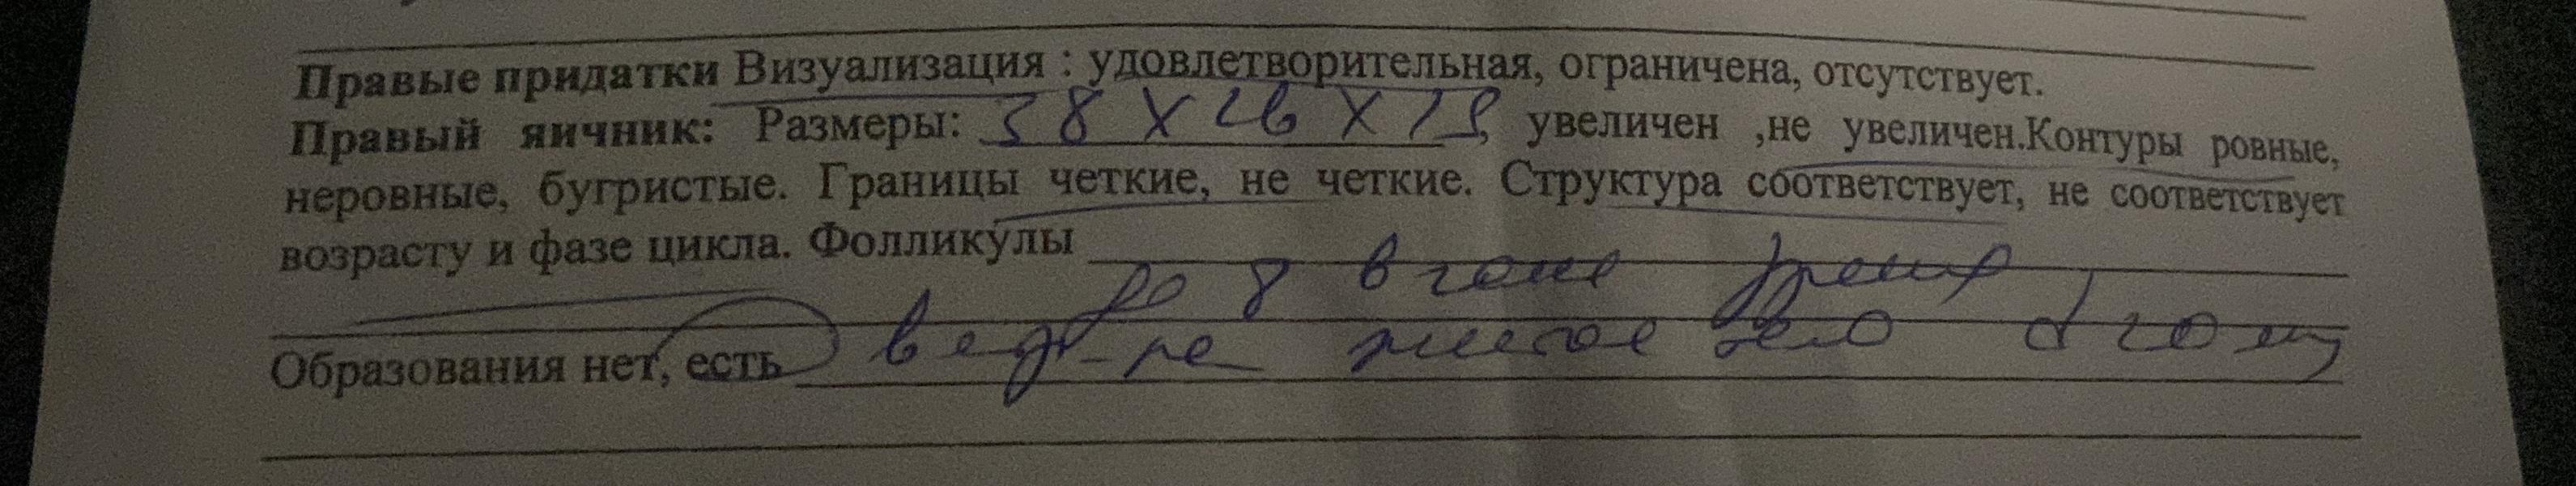 Правые придатки Визуализация : удовлетворительная, ограничена, отсутствует.
Правый яичник: Размеры: 38 х 26 х 25, увеличен ,не увеличен.Контуры ровные,
неровные, бугристые. Границы четкие, не четкие. Структура соответствует, не соответствует
возрасту и фазе цикла. Фолликулы
до 8 в поле зрения
Образования нет, есть желтое тело d 20 мм